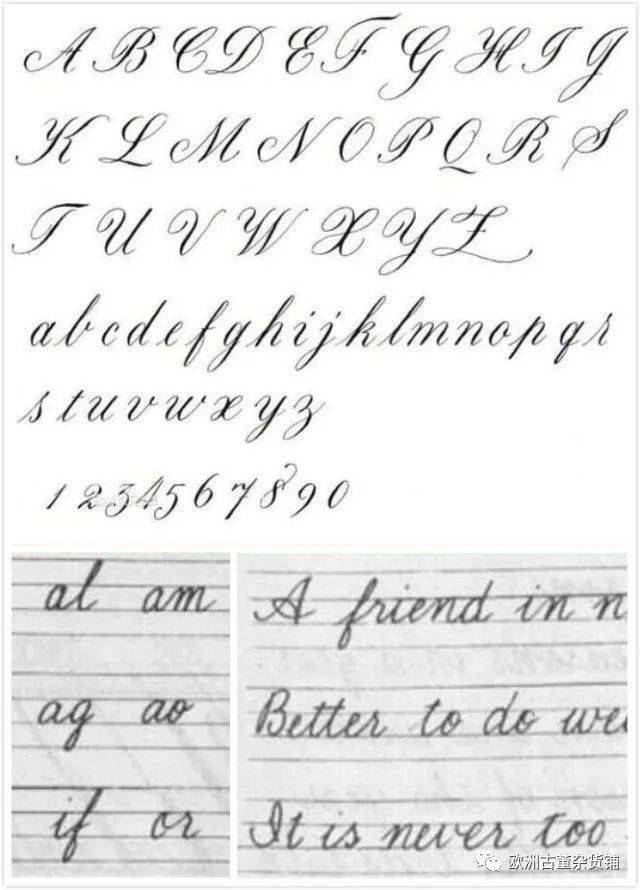 A B C D E F G H I J
K L M N O P Q R S
T U V W X Y Z
a b c d e f g h i j k l m n o p q r
s t u v w x y z
1 2 3 4 5 6 7 8 9 0
al am
ag ao
if or
A friend in n
Better to do we
It is never too
欧洲古董杂货铺